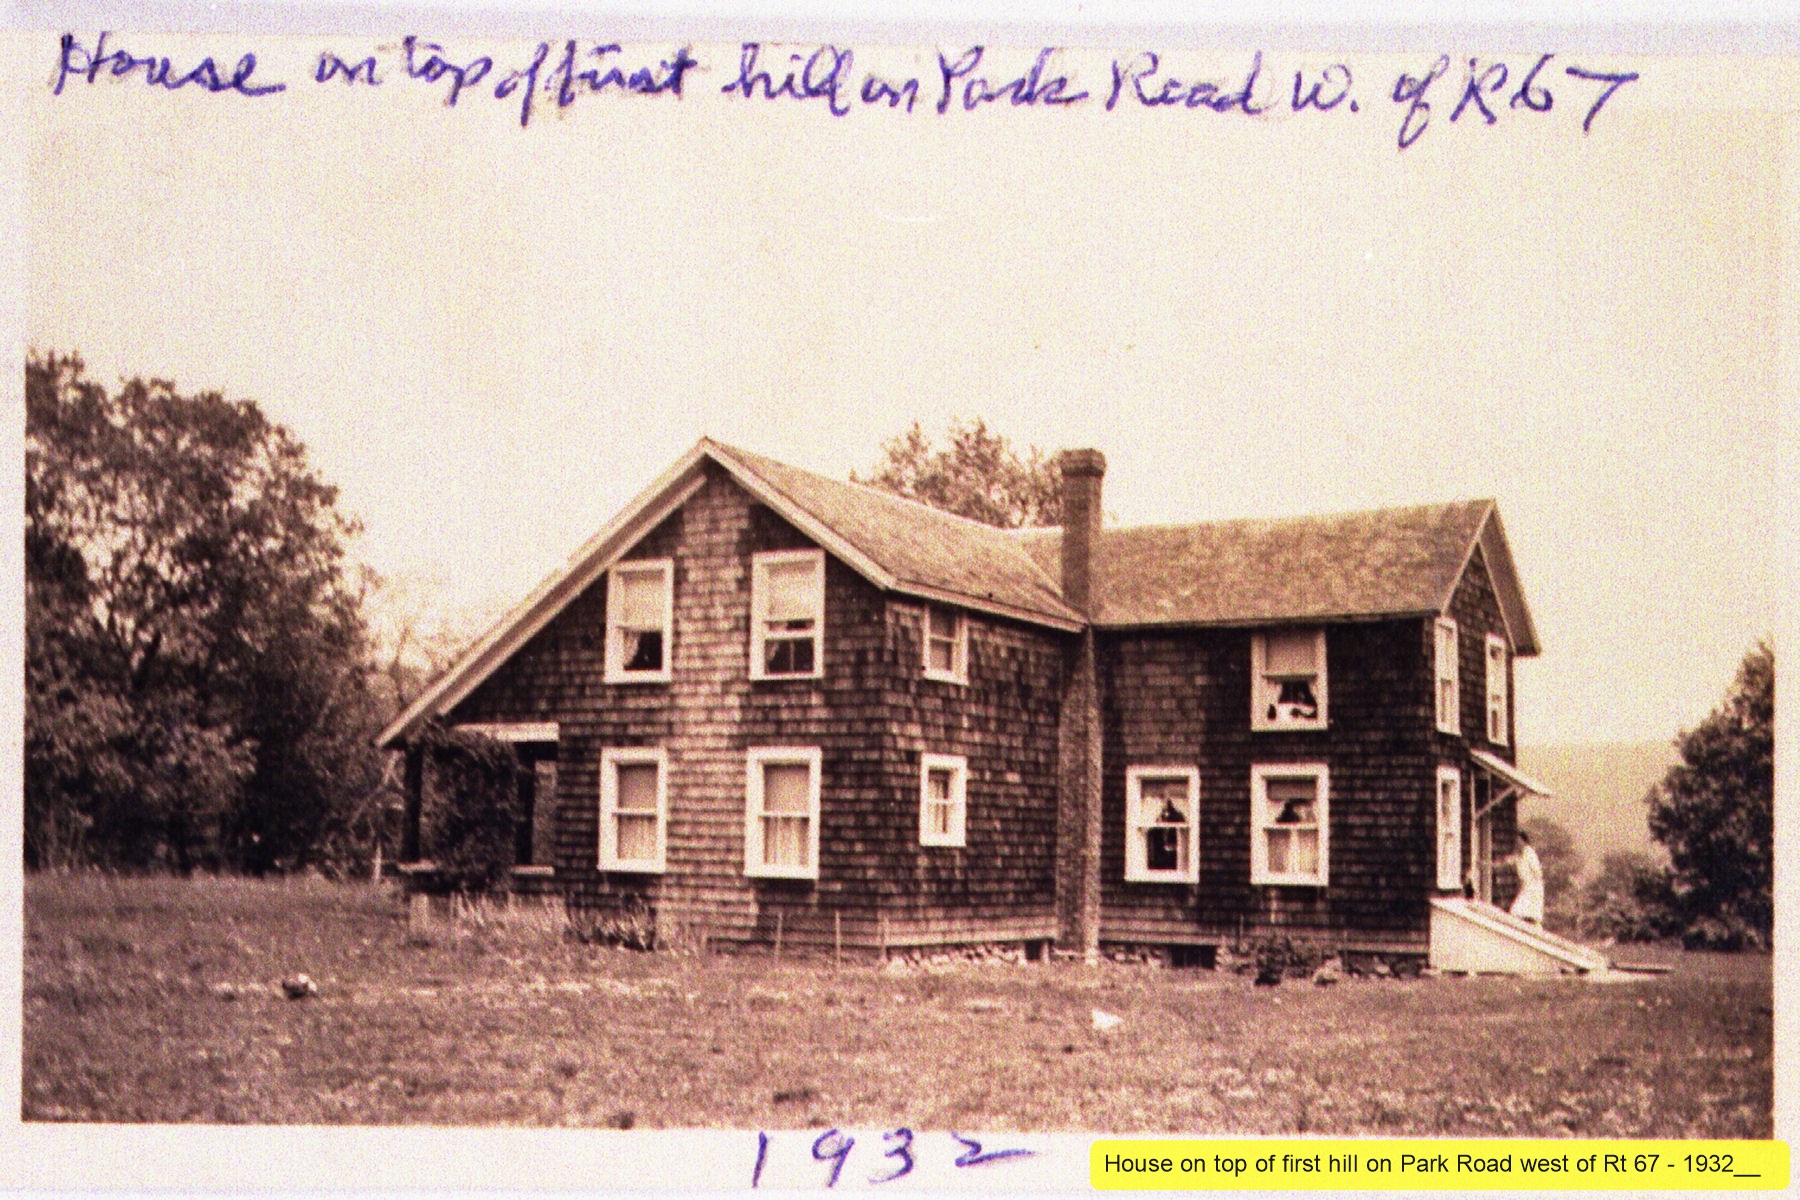 House on top of first hill on Park Road W. of R67
1932
House on top of first hill on Park Road west of Rt 67 - 1932__